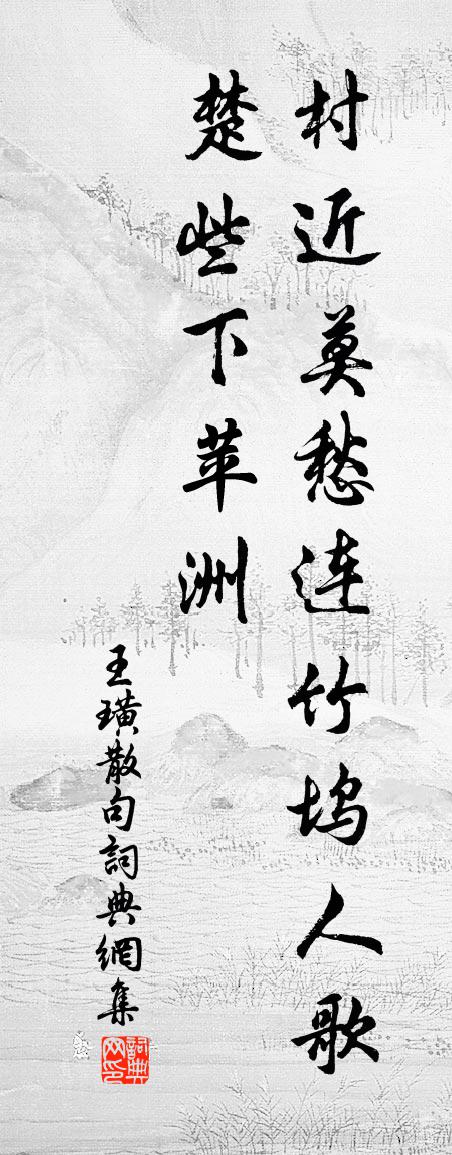 村近莫愁连竹坞人歌
楚些下苹洲
王璜散句詞典網集
詞典网印